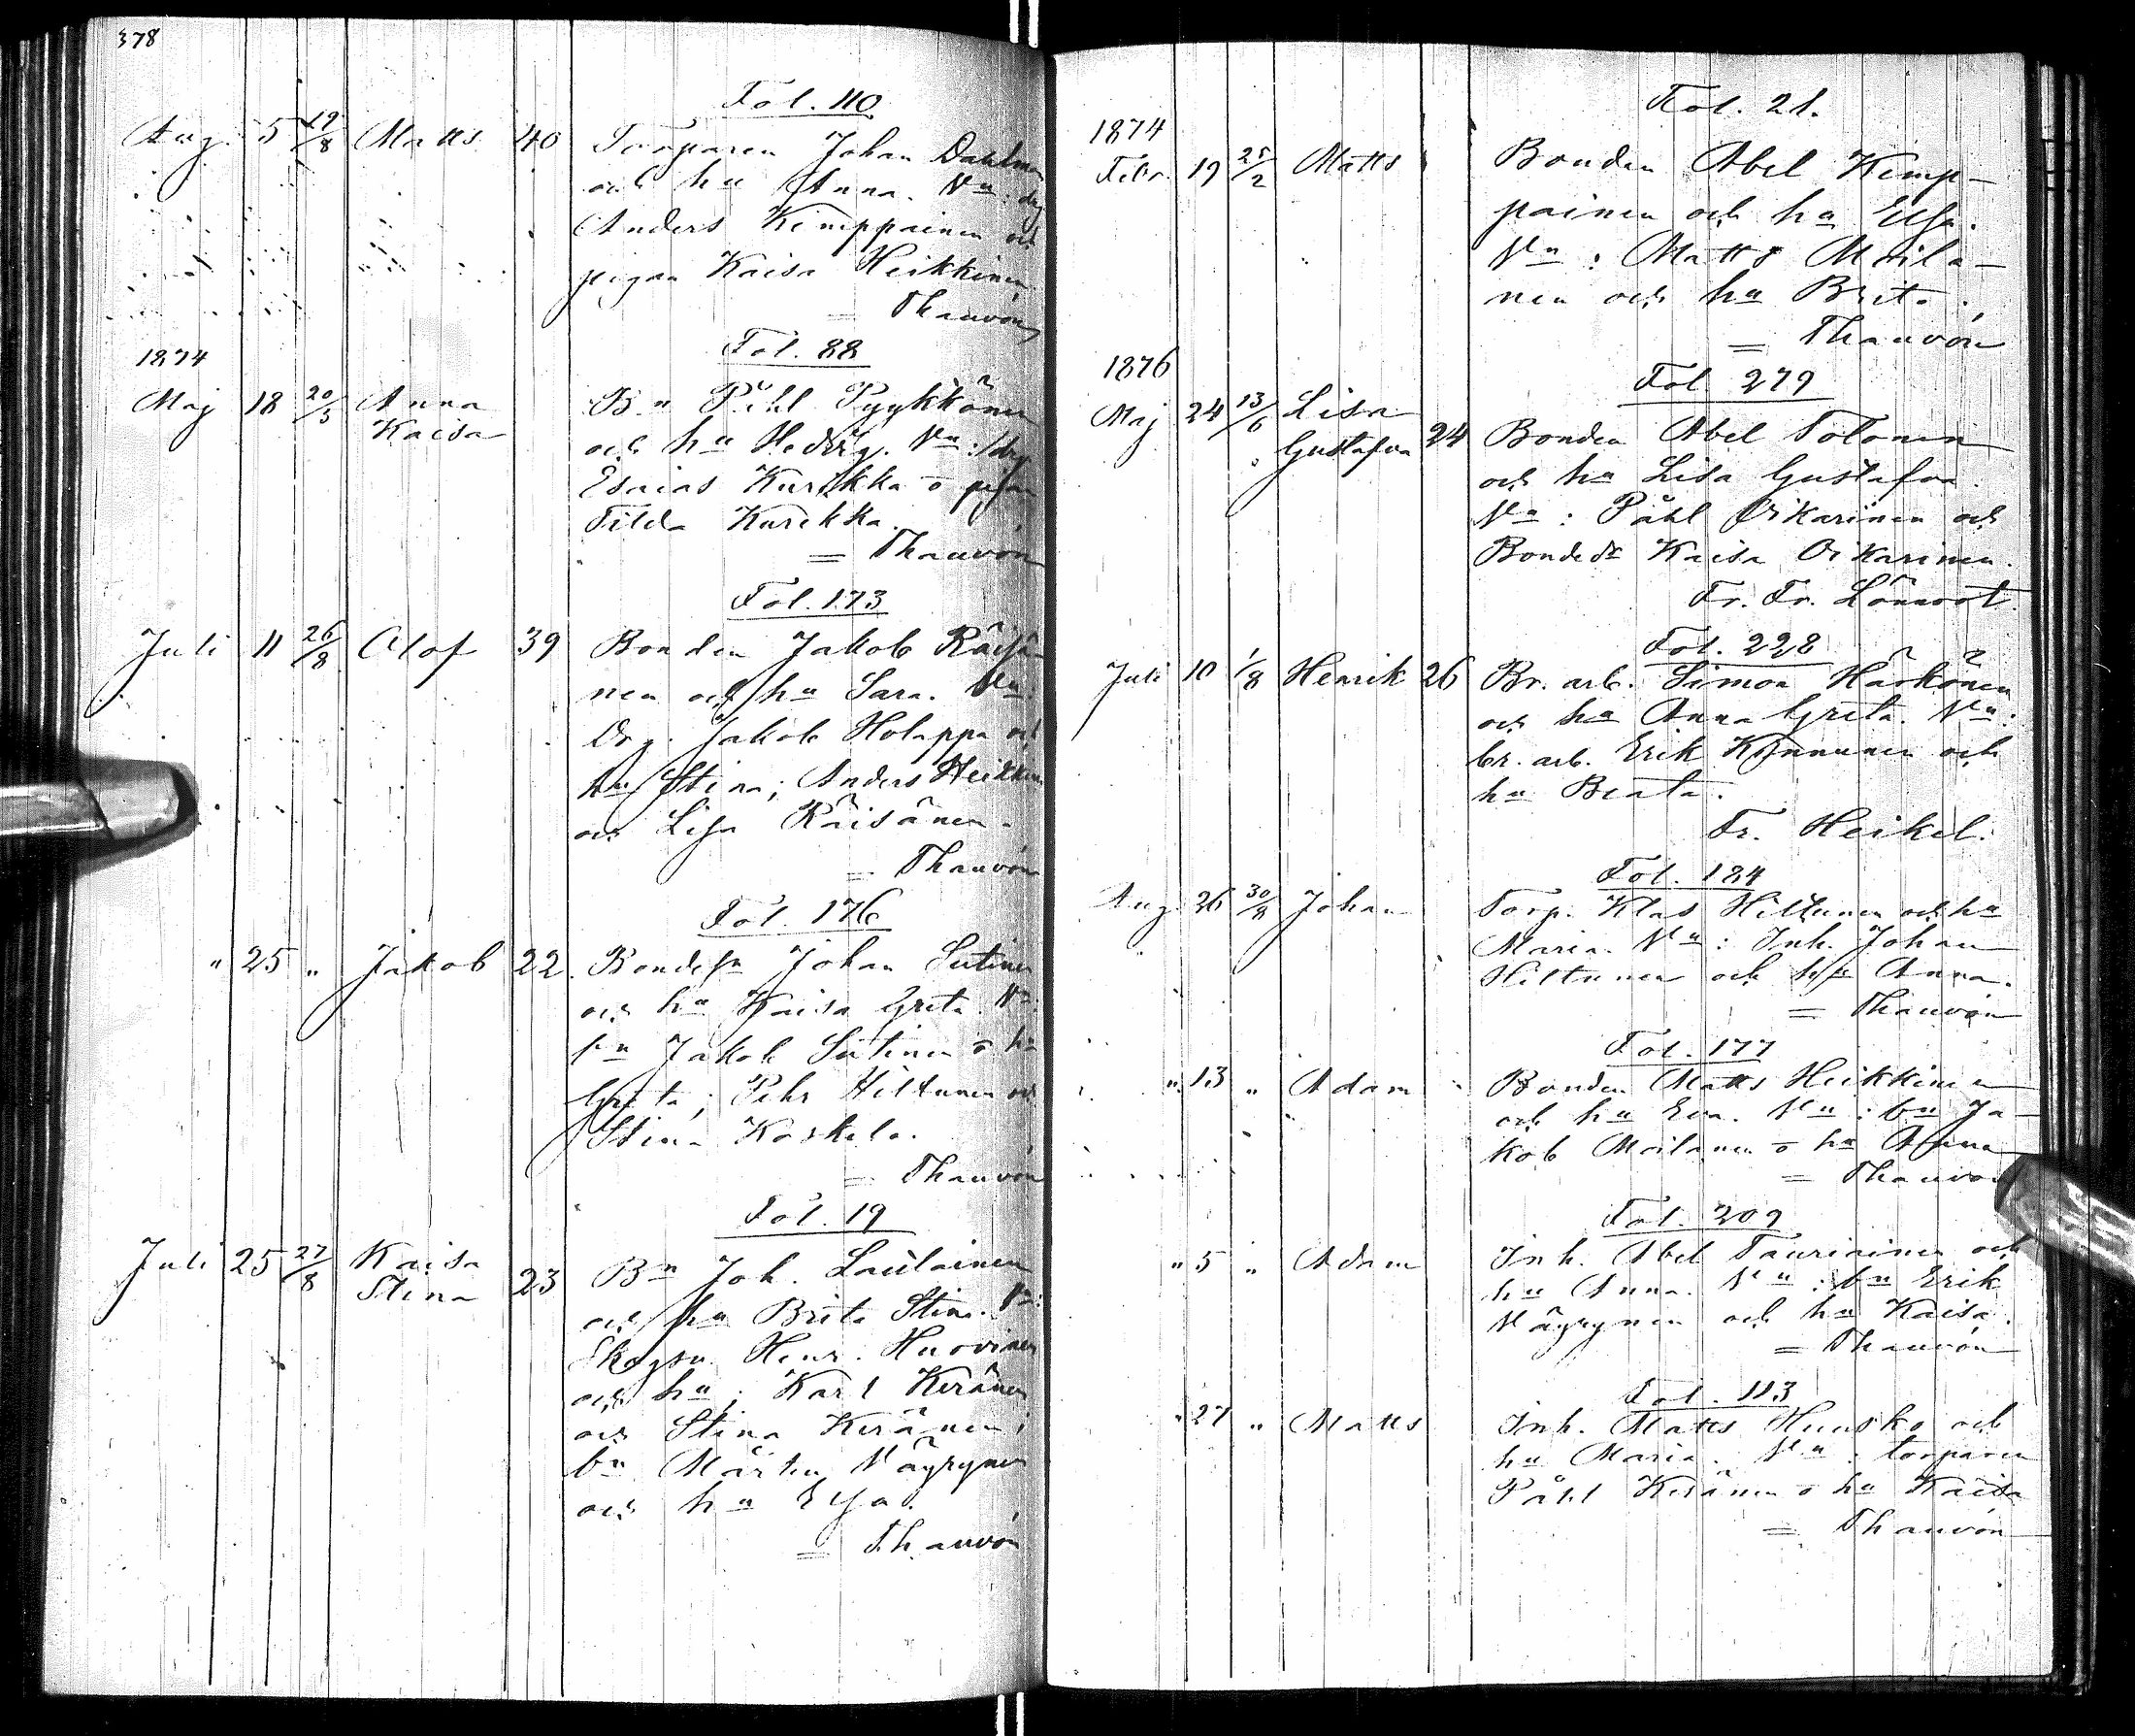 378
Fol. 110
Aug. 5 19/8 Matts 40 Torparen Johan Dahlman
och hu Anna. Vn: drg
Anders Kemppainen och
pigan Kaisa Heikkinen.
= Thauvón
1874
Fol. 88
Maj 18 20/5 Anna Bn Påhl Pyykkönen
Kaisa och hu Hedvig. Vn: /drg
Esaias Kurikka o pigan
Tilda Kurikka.
= Thauvón
Fol. 173
Juli 11 26/8 Olof 39 Bonden Jakob Räisä-
nen och hu Sara. Vn:
Drg. Jakob Holappa och
hu Stina; Anders Heikkinen
och Lisa Räisänen.
= Thauvón
Fol. 176
" 25 " Jakob 22. Bondesn Johan Sutinen
och hu Kaisa Greta. Vn:
sn Jakob Sutinen o hu
Greta; Pehr Hiltunen och
Stina Koskelo.
= Thauvón
Fol. 19
Juli 25 27/8 Kaisa
Stina 23 Bn Joh. Laulainen
och hu Brita Stina. Vn:
Henr. Huovinen
och hu; Karl Keränen
och Stina Keränen;
bn Mårten Väyrynen
och hu Elsa.
= Thauvón
Fol. 21.
1874
Febr. 19 25/2 Matts Bonden Abel Kemp-
painen och hu Elsa.
Vn: Matts Moila-
nen och hu Brita.
= Thauvón
1876
Fol. 279
Maj 24 13/6 Lisa
Gustafva 24 Bonden Abel Tolonen
och hu Lisa Gustafva.
Vn: Påhl Oikarinen och
Bondedr Kaisa Oikarinen.
Fr. Fr. Lönnrot.
Fol. 228
Juli 10 1/8 Henrik 26 Br. arb. Simon Härkönen
och hu Anna Greta. Vn:
br. arb. Erik Kinnunen och
hu Beata.
Fr. Heikel.
Fol. 184
Aug. 26 30/8 Johan Torp. Klas Hiltunen och hu
Maria. Vn: Inh. Johan
Hiltunen och hu Anna.
= Thauvón
Fol. 177
" 13 " Adam Bonden Matts Heikkinen
och hu Eva. Vn: bn Ja-
kob Moilanen o hu Anna
= Thauvón
Fol. 209
" 5 " Adam Inh. Abel Tauriainen och
hu Anna. Vn: bn Erik
Väyrynen och hu Kaisa.
= Thauvón
Fol. 113
" 27 " Matts Inh. Matts Huusko och
hu Maria. Vn: torparen
Påhl Keränen o hu Kaisa
= Thauvón